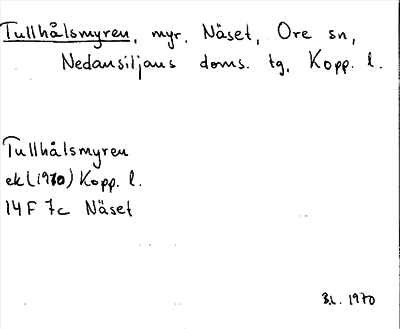 Tullhålsmyren, myr, Näset, Ore sn,
Nedansiljans doms. tg, Kopp. l.
Tullhålsmyren
ek (1970) Kopp. l.
14 F 7c Näset
1970